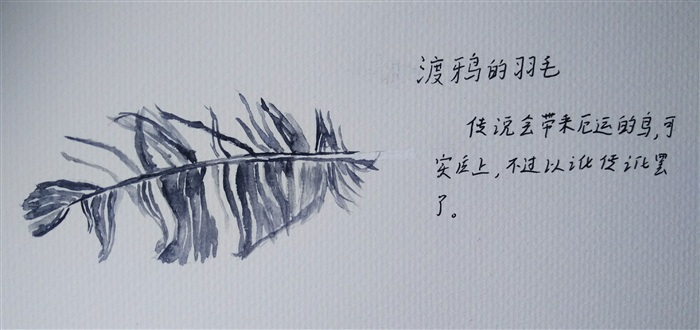 渡鸦的羽毛
传说会带来厄运的鸟,可
实际上,不过以讹传讹罢
了。